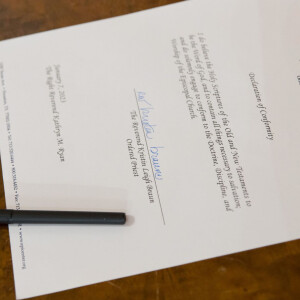 Declaration of Conformity
I do believe the Holy Scriptures of the Old and New Testaments to
be the Word of God, and to contain all things necessary to salvation;
and do solemnly engage to conform to the Doctrine, Discipline, and
Worship of the Episcopal Church.
The Reverend Kristin Leigh Braun
Ordered Priest
January 7, 2023
The Right Reverend Kathryn M. Ryan